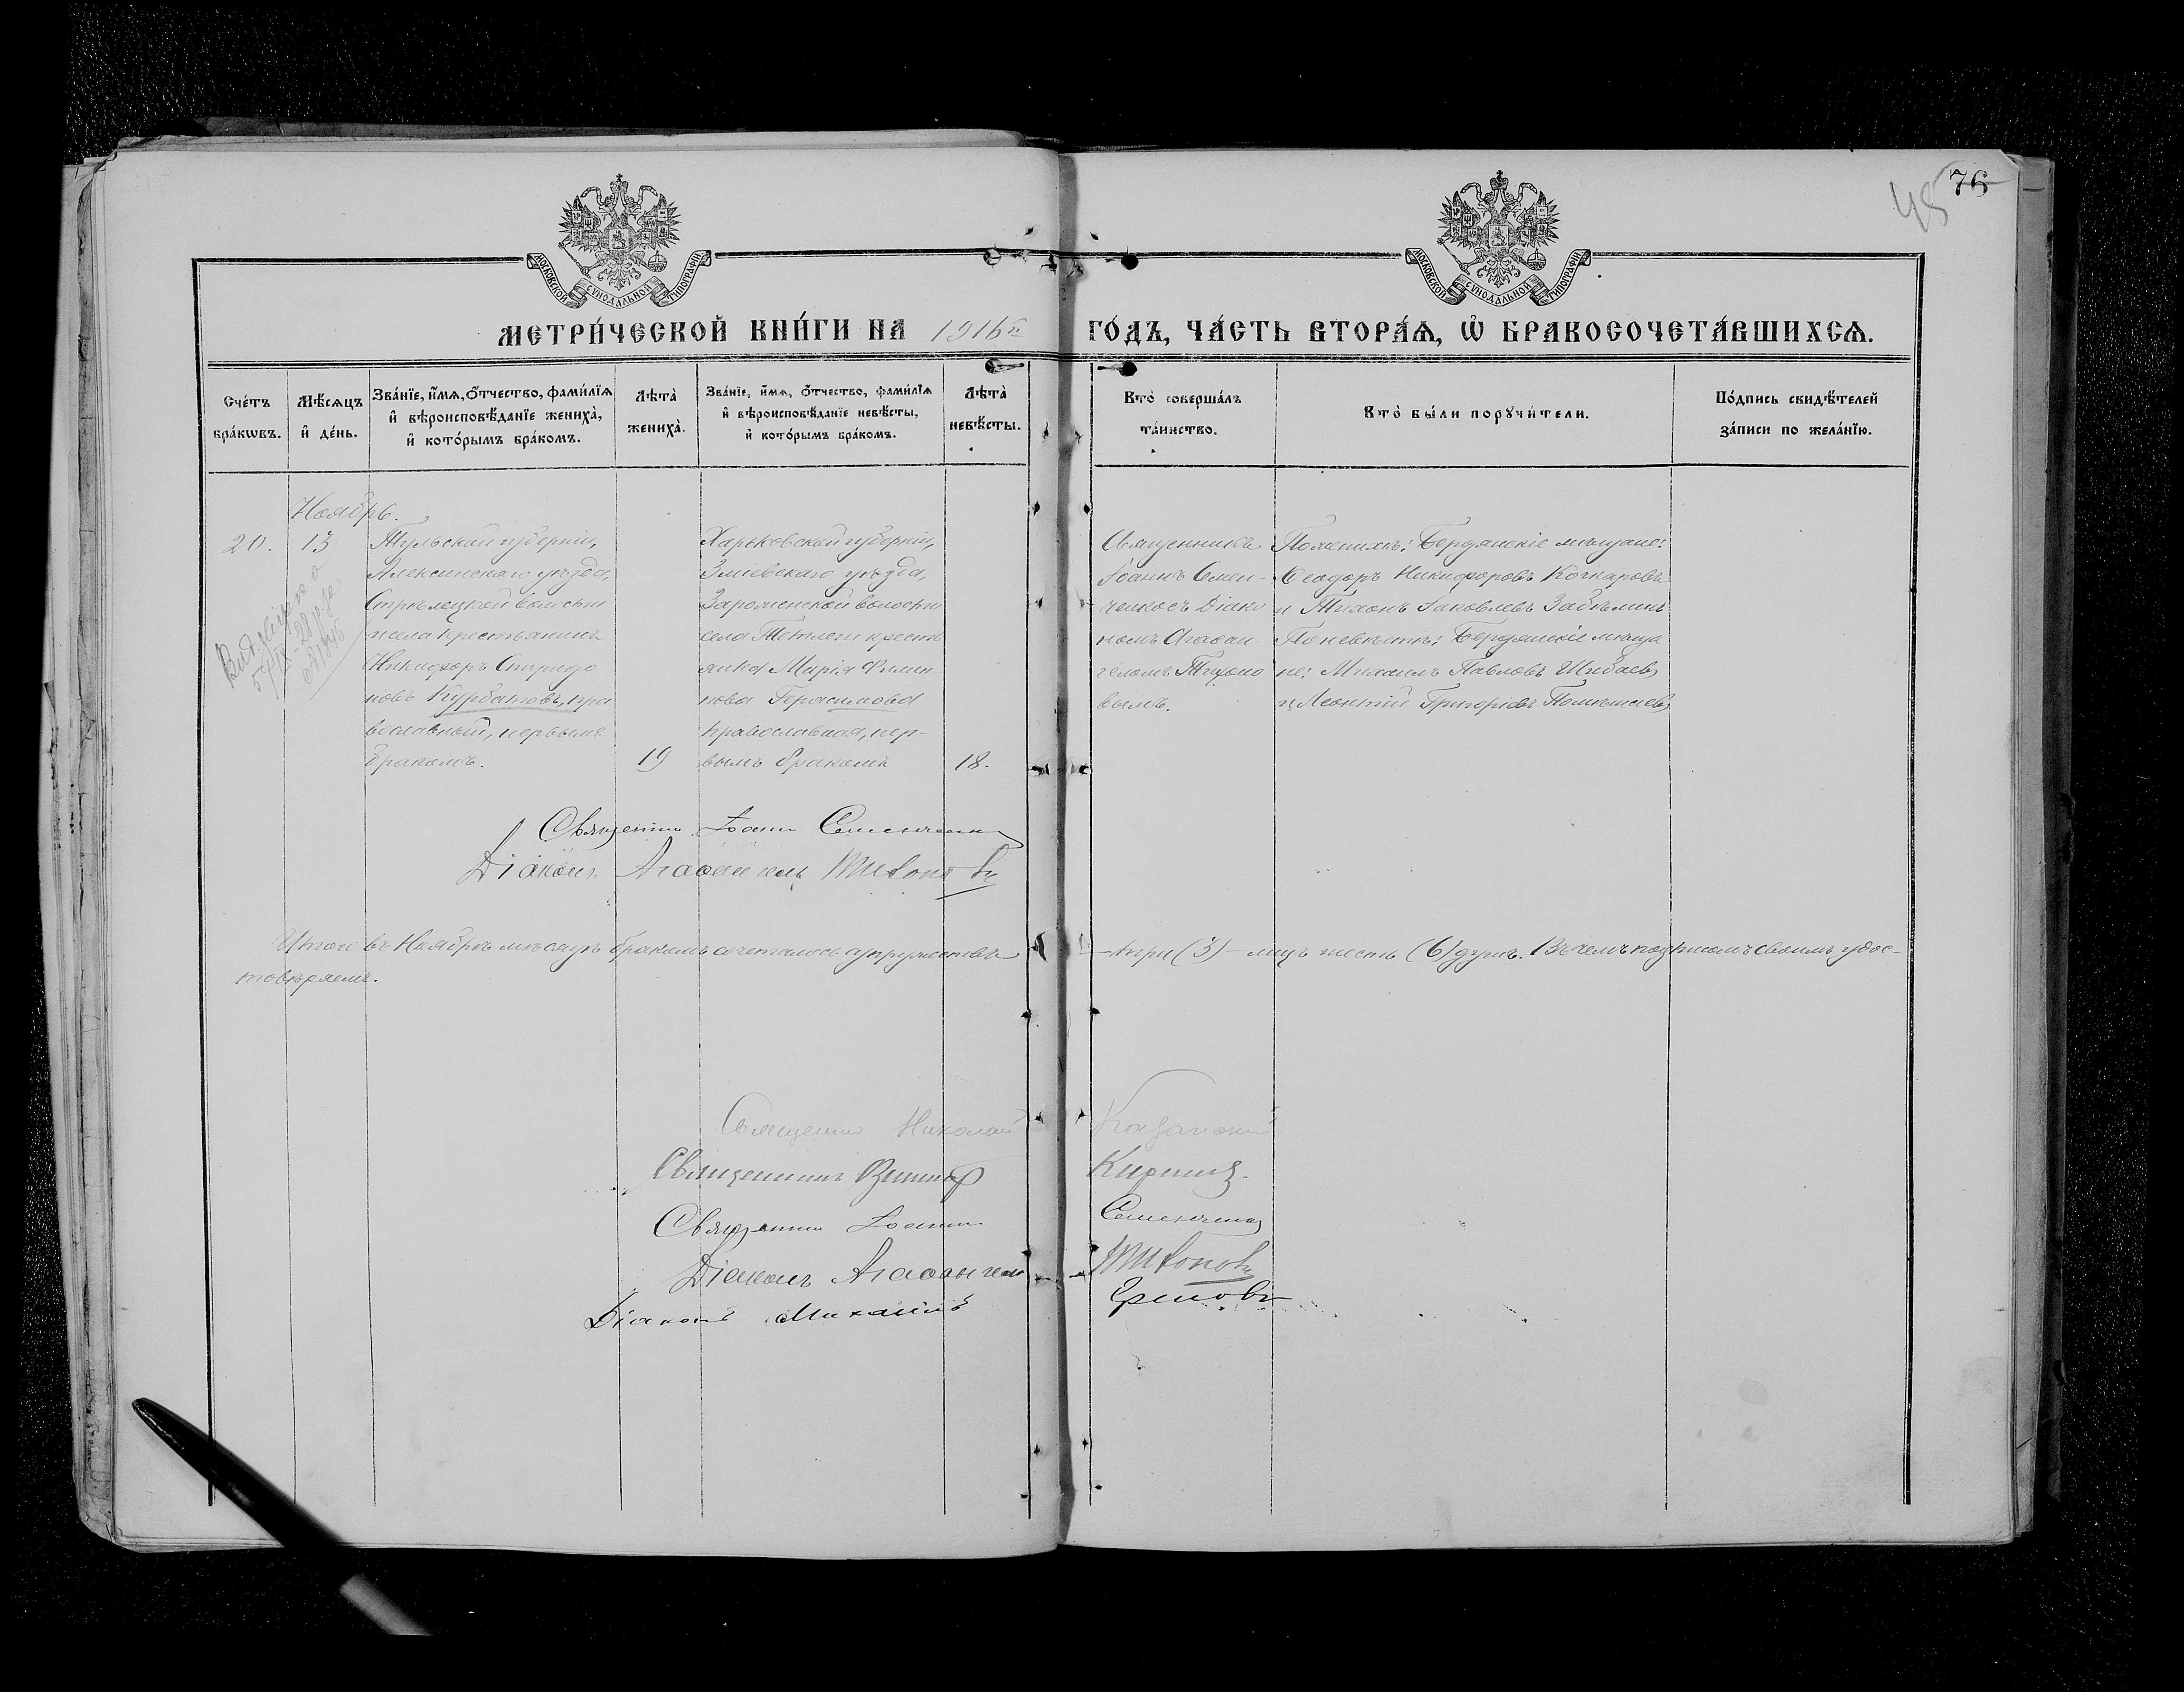 76
48
МОСКОВСКОЙ СУНОДАЛЬНОЙ ТИПОГРАФІИ
МОСКОВСКОЙ СУНОДАЛЬНОЙ ТИПОГРАФІИ
МЕТРИ́ЧЕСКОЙ КНИ́ГИ НА 1916й ГО́ДЪ, ЧА́СТЬ ВТОРА́Я, Ѽ БРАКОСОЧЕТА́ВШИХСѦ.
Сче́тъ
бра́кѡвъ.
Мѣ́сяцъ
и҆ де́нь.
Зва́нїе, и҆́мѧ, ѻ҆́тчество, фами́лїѧ
и҆ вѣроисповѣ́данїе жениха̀,
и҆ кото́рымъ бра́комъ.
Лѣта̀
жениха̀.
Зва́нїе, и҆́мѧ, ѻ҆́тчество, фами́лїѧ
и҆ вѣроисповѣ́данїе невѣ́сты,
и҆ кото́рымъ бра́комъ.
Лѣта̀
невѣ́сты.
Кто̀ соверша́лъ
та́инство.
Кто̀ бы́ли порꙋчи́тели.
По́дпись свидѣ́телей
за́писи по жела́нїю.
Ноябрь.
20.
13
Тульской губерніи,
Алексинскаго уѣзда,
Стрѣлецкой волости
и села крестьянинъ
Никифоръ Спиридо
новъ Курбатовъ, пра
вославный, первымъ
бракомъ.
19
Харьковской губерніи,
Зміевскаго уѣзда,
волости
села крестъ
янка Марія Филип
пова Герасимова
православная, пер-
вымъ бракомъ
18.
Священникъ
Іоаннъ Семен-
ченко съ Діако
номъ Агаѳан
геломъ Тихоно
вымъ.
По женихѣ: Бердянскіе мѣщане:
Ѳеодоръ Никифоровъ
и Тихонъ Іаковлевъ
По невѣстѣ: Бердянскіе мѣща
не: Михаилъ Павловъ Шибаевъ
и Леонтій Григорьевъ
Священникъ Іоаннъ Семенченко
Діаконъ Агаѳангелъ Тихоновъ
Итого въ Ноябрѣ мѣсяцѣ бракомъ сочеталось супружествъ – три (3) – лицъ шесть (6) душъ. Въ чемъ подписомъ своимъ удос-
товѣряемъ.
Священникъ Николай Казанскій
Священникъ
Священникъ Іоаннъ Семенченко
Діаконъ Агаѳангелъ Тихоновъ
Діаконъ Михаилъ